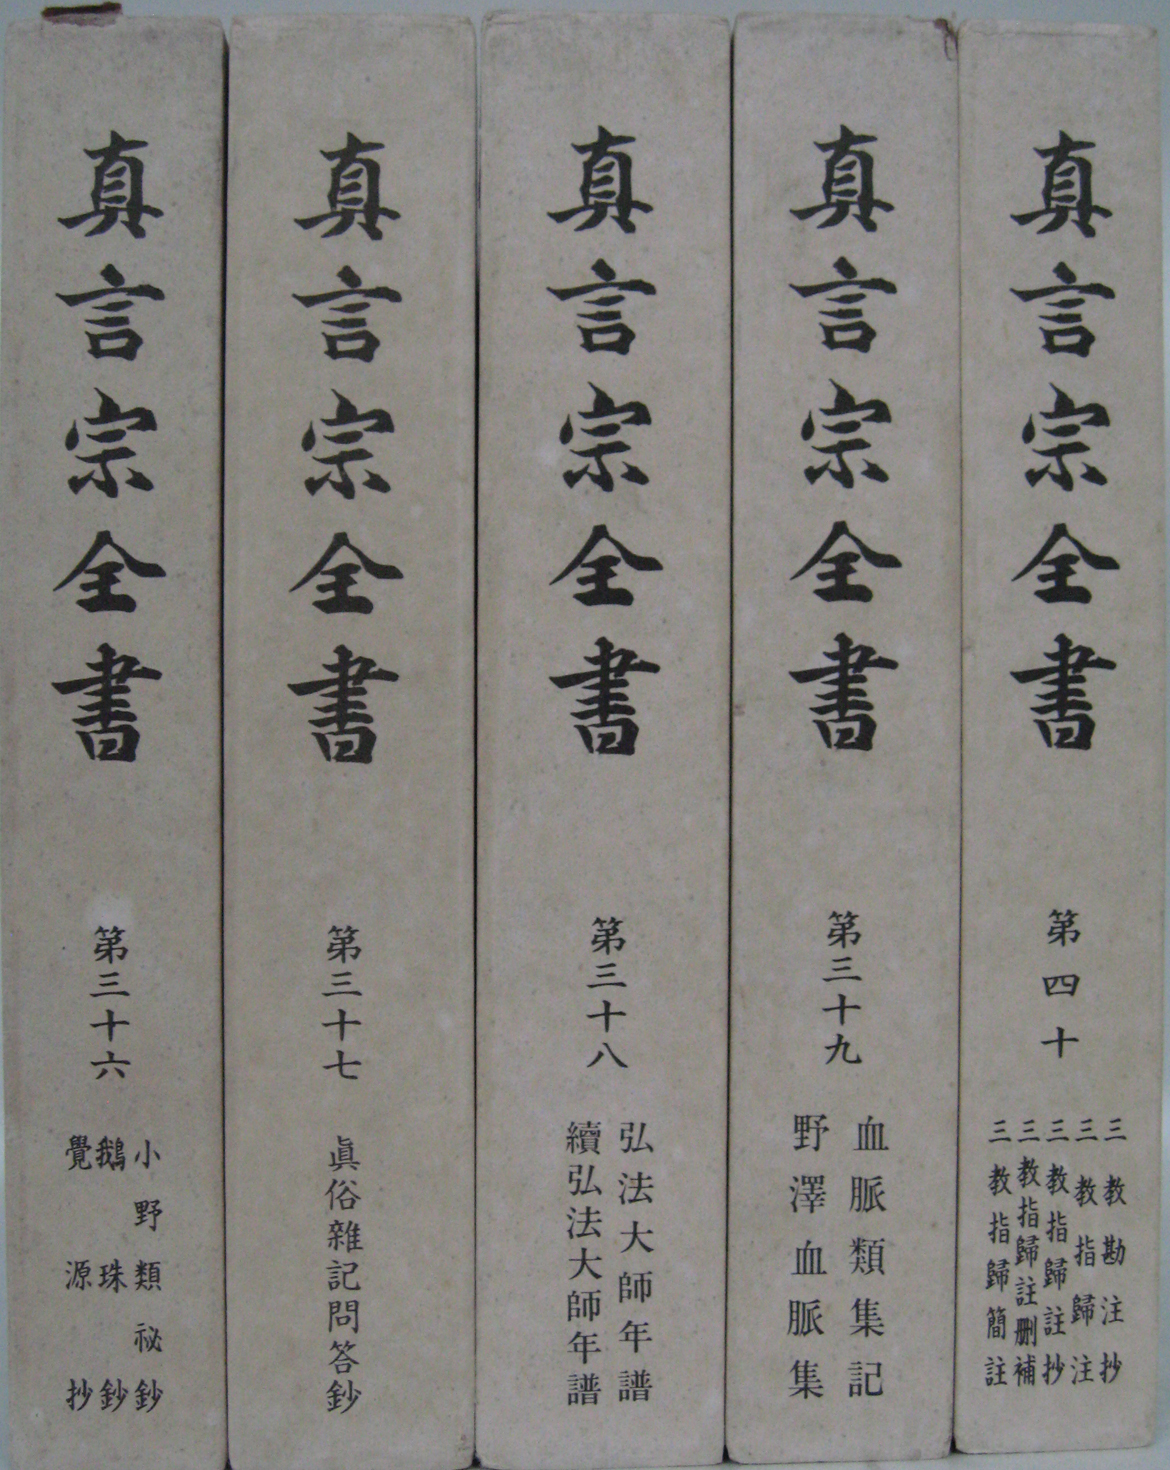 真言宗全書
第三十六
小野類祕鈔
鵝珠鈔
覺源抄
真言宗全書
第三十七
眞俗雜記問答鈔
真言宗全書
第三十八
弘法大師年譜
續弘法大師年譜
真言宗全書
第三十九
血脈類集記
野澤血脈集
真言宗全書
第四十
三教勘注抄
三教指歸注
三教指歸註抄
三教指歸註刪補
三教指歸簡註